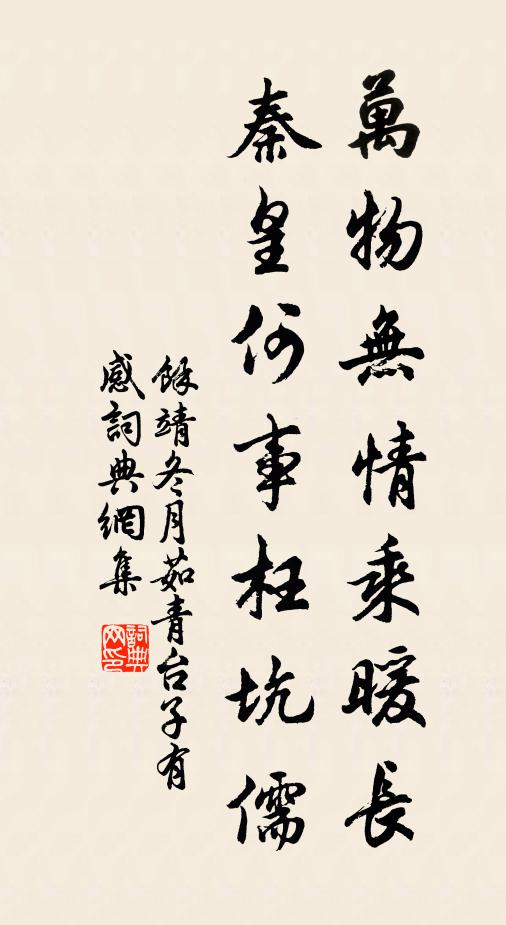 萬物無情乘暖長
秦皇何事枉坑儒
餘靖冬月茹青台子有
感詞典網集
詞典
网印